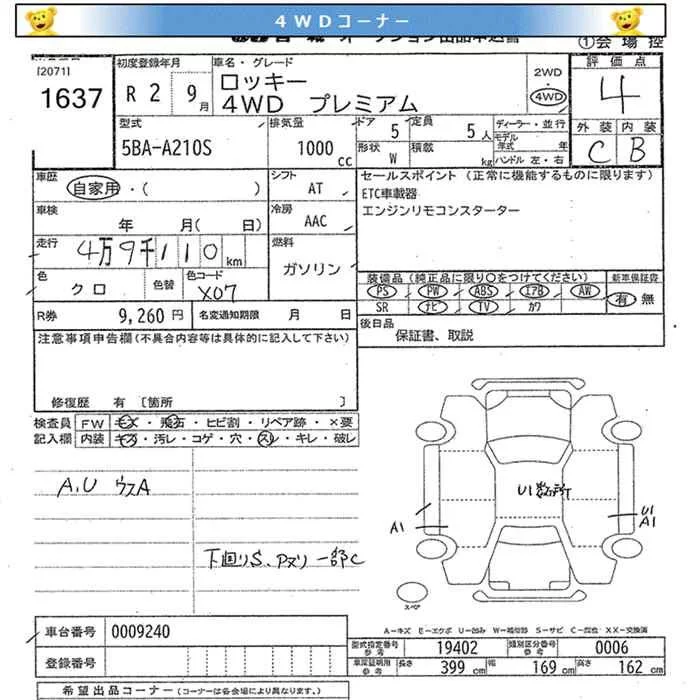 4WDコーナー
①会場控
[2071]
1637
初度登録年月
R 2 9月
車名・グレード
ロッキー
4WD プレミアム
2WD
・
4WD
評価点
4
外装 内装
C B
型式
5BA-A210S
排気量
1000 cc
ドア 5
定員 5人
形状 W
積載 kg
ディーラー・並行
モデル年式 年
ハンドル 左・右
車歴
自家用・( )
シフト
AT
セールスポイント (正常に機能するものに限ります)
ETC車載器
エンジンリモコンスターター
車検
年 月( 日)
冷房
AAC
走行
4万9千110km
燃料
ガソリン
色
クロ
色替
色コード
X07
装備品(純正品に限り○をつけてください)
PS PW ABS エアB AW
SR ナビ TV カワ
新車保証書
有・無
R券 9,260円
名変通知期限 月 日
後日品
保証書、取説
注意事項申告欄(不具合内容等は具体的に記入して下さい)
修復歴 有 [箇所 ]
検査員記入欄
FW キズ・飛石・ヒビ割・リペア跡・×要
内装 キズ・汚レ・コゲ・穴・スレ・キレ・破レ
A,U ウスA
下回りS、アヌリ 一部C
U1数ヶ所
A1
U1
A1
スペア
A-キズ E-エクボ U-凹み W-補修跡 S-サビ C-腐蝕 XX-交換済
車台番号 0009240
登録番号
型式指定番号 参考 19402
類別区分番号 参考 0006
車庫証明用 参考 長さ 399cm 幅 169cm 高さ 162cm
希望出品コーナー(コーナーは各会場により異なります。)